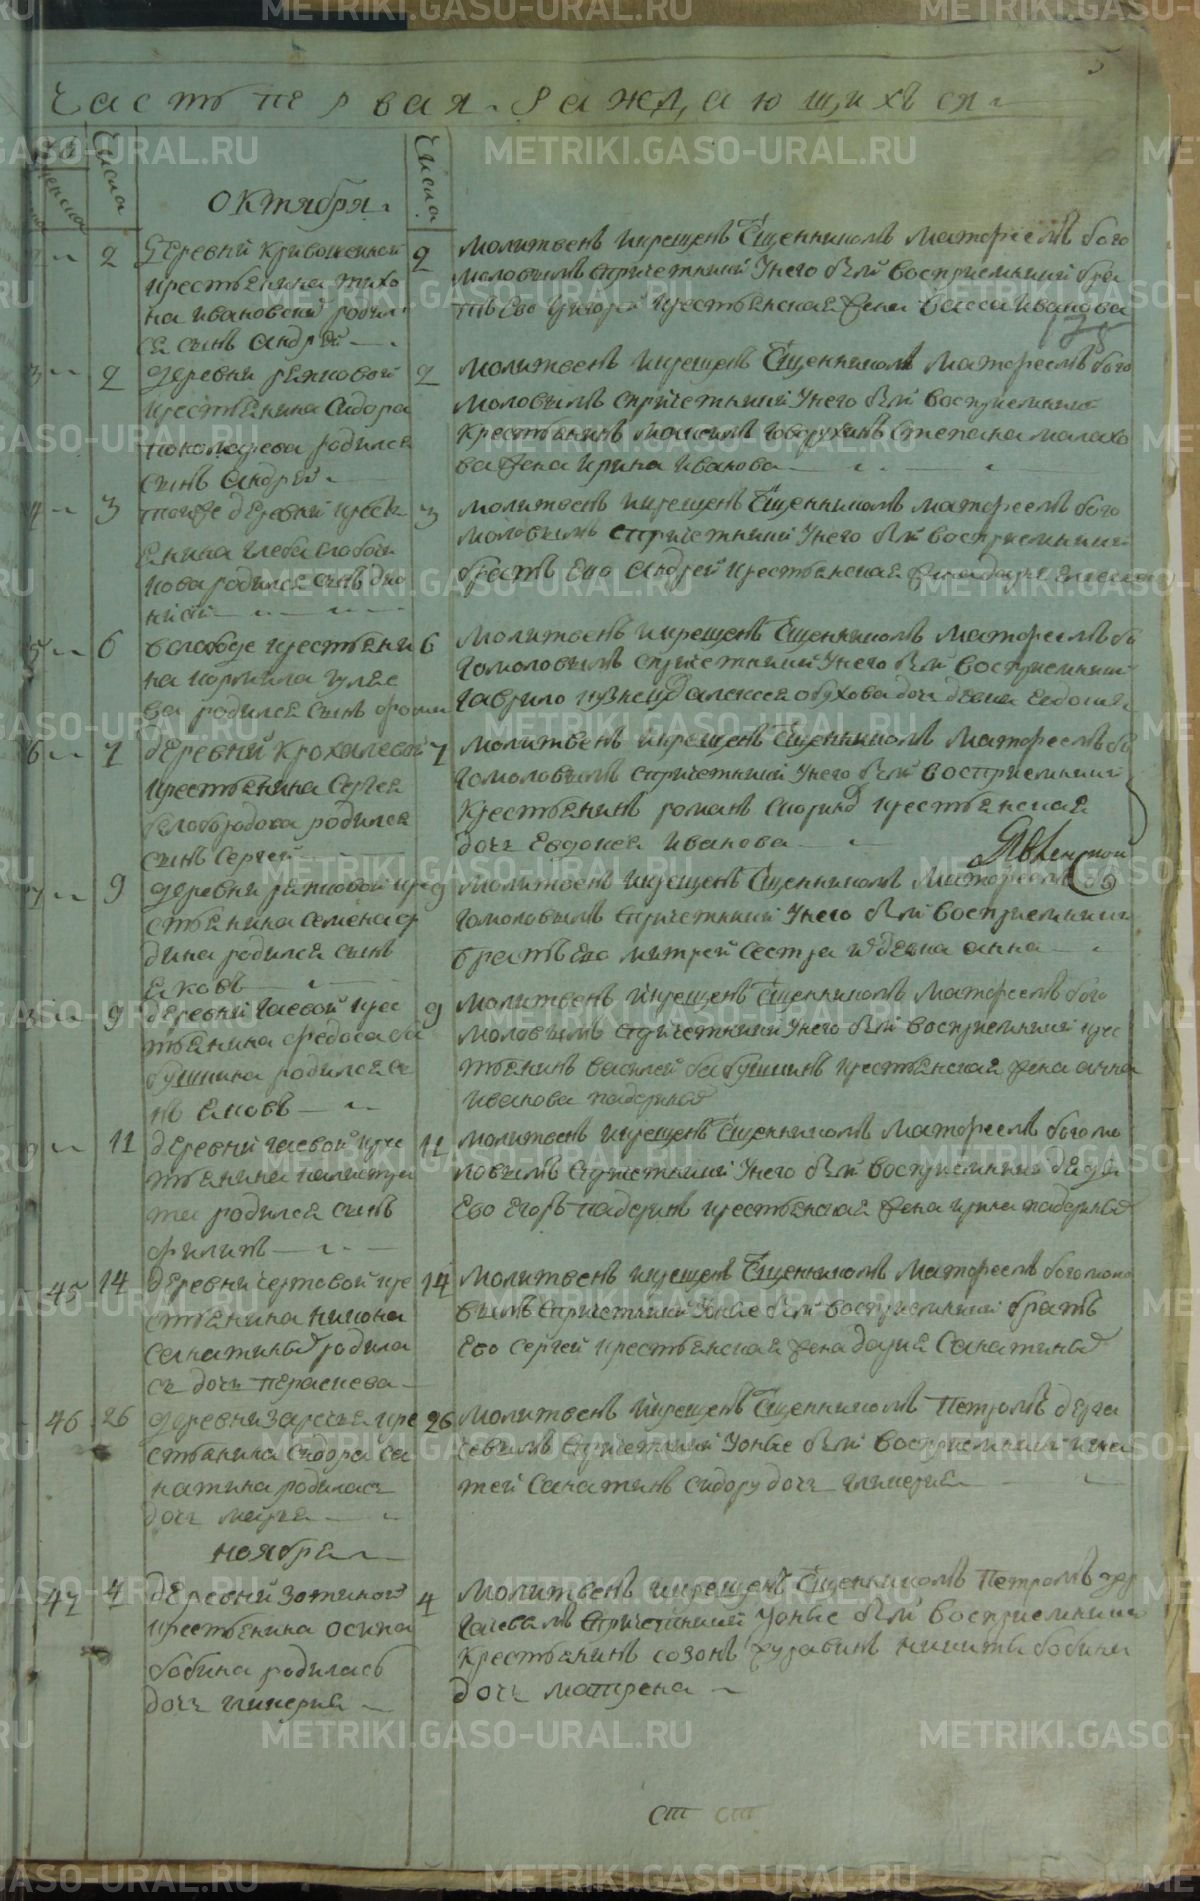 Часть первая. Раждающихъся
5
Числа
Числа
Октября
2
деревни Кривошенной
крестьянина Тихо
на Ивановских родил
ся сынъ Андрей
2
Молитвенъ и крещенъ Священникомъ Матфеемъ бого
моловымъ с причетники у него были восприемники бра
тъ ево Григорей крестьянская жена Васса Иванова
175
3
2
деревни режиковой
крестьянина Сидора
пономарева родился
сынъ Андрей
2
Молитвенъ и крещенъ Священникомъ Матфеемъ бого
моловымъ с причетники у него были восприемники
крестьянинъ Максимъ говорухинъ Степана малахо
ва жена Ирина Иванова
4
3
тояже деревни кресть
енина Глеба слобод
кова родился сынъ Дио
нисий
3
Молитвенъ и крещенъ Священникомъ Матфеемъ бого
моловымъ с причетники у него были восприемники
братъ ево Андрей крестьянская жена дарья
5
6
в слободе крестьяни
на кормила гуляе
ва родился сынъ фома
6
Молитвенъ и крещенъ Священникомъ Матфеемъ бо
гомоловымъ с причетники у него были восприемники
гаврило кузнецов алексея обухова дочь девица евдокия
6
7
деревни Крохалевой
крестьянина Сергея
белобродова родился
сынъ Сергей
7
Молитвенъ и крещенъ Священникомъ Матфеемъ бо
гомоловымъ с причетники у него были восприемники
крестьянинъ романъ крестьянская
дочь Евдокея Иванова
7
9
деревни режиковой кре
стьянина Семена
дина родился сынъ
Еаковъ
9
Молитвенъ и крещенъ Священникомъ Матфеемъ бо
гомоловымъ с причетники у него были восприемники
братъ ево митрей сестра девка анна
8
9
деревни гаевой крес
тьянина федоса ба
бушкина родился сы
нъ Еаковъ
9
Молитвенъ и крещенъ Священникомъ Матфеемъ бого
моловымъ с причетники у него были восприемники крес
тьянинъ василей бабушкинъ крестьянская жена анна
Иванова падериных
9
11
деревни гаевой кре
стьянина калистра
та родился сынъ
филипъ
11
Молитвенъ и крещенъ Священникомъ Матфеемъ богомо
ловымъ с причетники у него были восприемники дядя
ево Егоръ падеринъ крестьянская жена ирина падериных
45
14
деревни чертовой кре
стьянина никона
санатиных родила
съ дочь пераскева
14
Молитвенъ и крещенъ Священникомъ Матфеемъ богомоло
вымъ с причетники у оные были восприемники братъ
ево Сергей крестьянская жена дария Санатиных
46
26
деревни заречья кре
стьянина Сидора са
натина родилась
дочь марья
26
Молитвенъ и крещенъ Священникомъ Петромъ дерга
чевымъ с причетники у оные были восприемники игна
тей Санатинъ сидору дочь гликерия
ноября
47
4
деревни зотиной
крестьянина осипа
бобина родилась
дочь гликерия
4
Молитвенъ и крещенъ Священникомъ Петромъ дер
гачевымъ с причетники у оные были восприемники
крестьянинъ созонъ журавинъ никиты бобина
дочь матрена